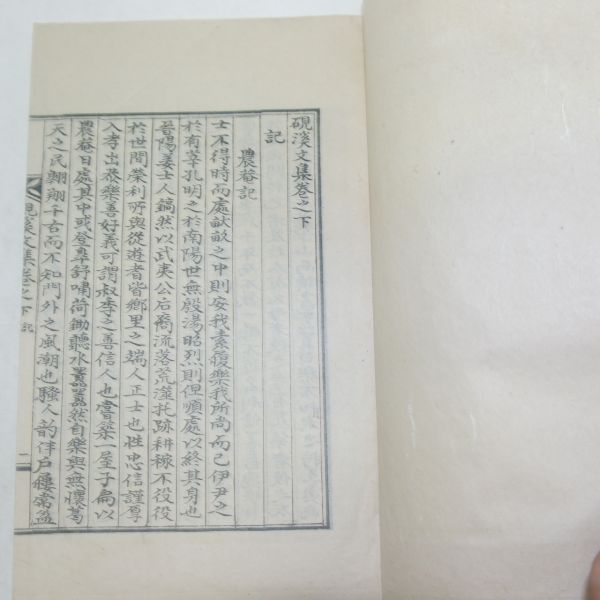 硯溪文集卷之下
記
農菴記
士不得時而處畎畝之中則安我素復樂我所尚而已伊尹之
於有莘孔明之於南陽世無殷湯昭烈則但順處以終其身也
晉陽姜士人鎬然以武夷公后裔流落荒濱托跡耕稼不役役
於世間榮利所與從遊者皆鄉里之端人正士也性忠信謹厚
入孝出恭樂善好義可謂叔季之善信人也嘗築一屋子扁以
農菴日處其中或登皐舒嘯荷鋤聽水囂囂然自樂與無懷葛
天之民翺翔千古而不知門外之風潮也騷人韵伴戶屨常盈
硯溪文集卷之下 記 二